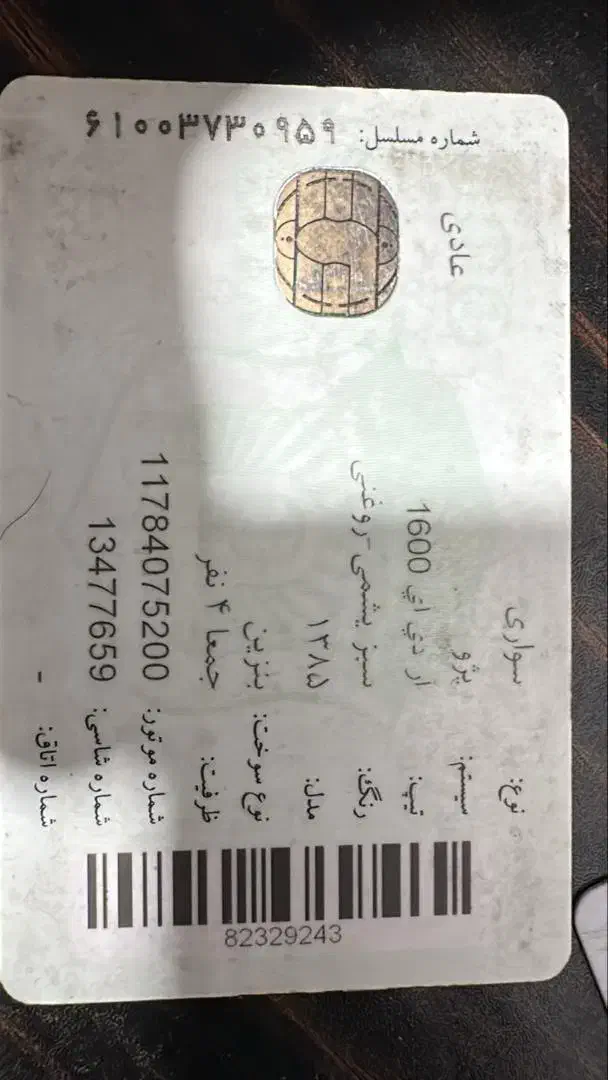 شماره مسلسل: ۶۱۰۰۳۷۳۰۹۵۹
عادی
نوع: سواری
سیستم: پژو
تیپ: ار دي اي 1600
رنگ: سبز یشمی-روغنی
مدل: ۱۳۸۵
نوع سوخت: بنزین
ظرفیت: جمعا ۴ نفر
شماره موتور: 11784075200
شماره شاسی: 13477659
شماره اتاق: -
82329243